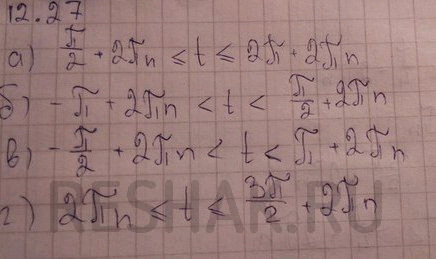 12.27
а) π/2 + 2πn ≤ t ≤ 2π + 2πn
б) - π + 2πn < t < π/2 + 2πn
в) - π/2 + 2πn < t < π + 2πn
г) 2πn ≤ t ≤ 3π/2 + 2πn
RESHAK.RU